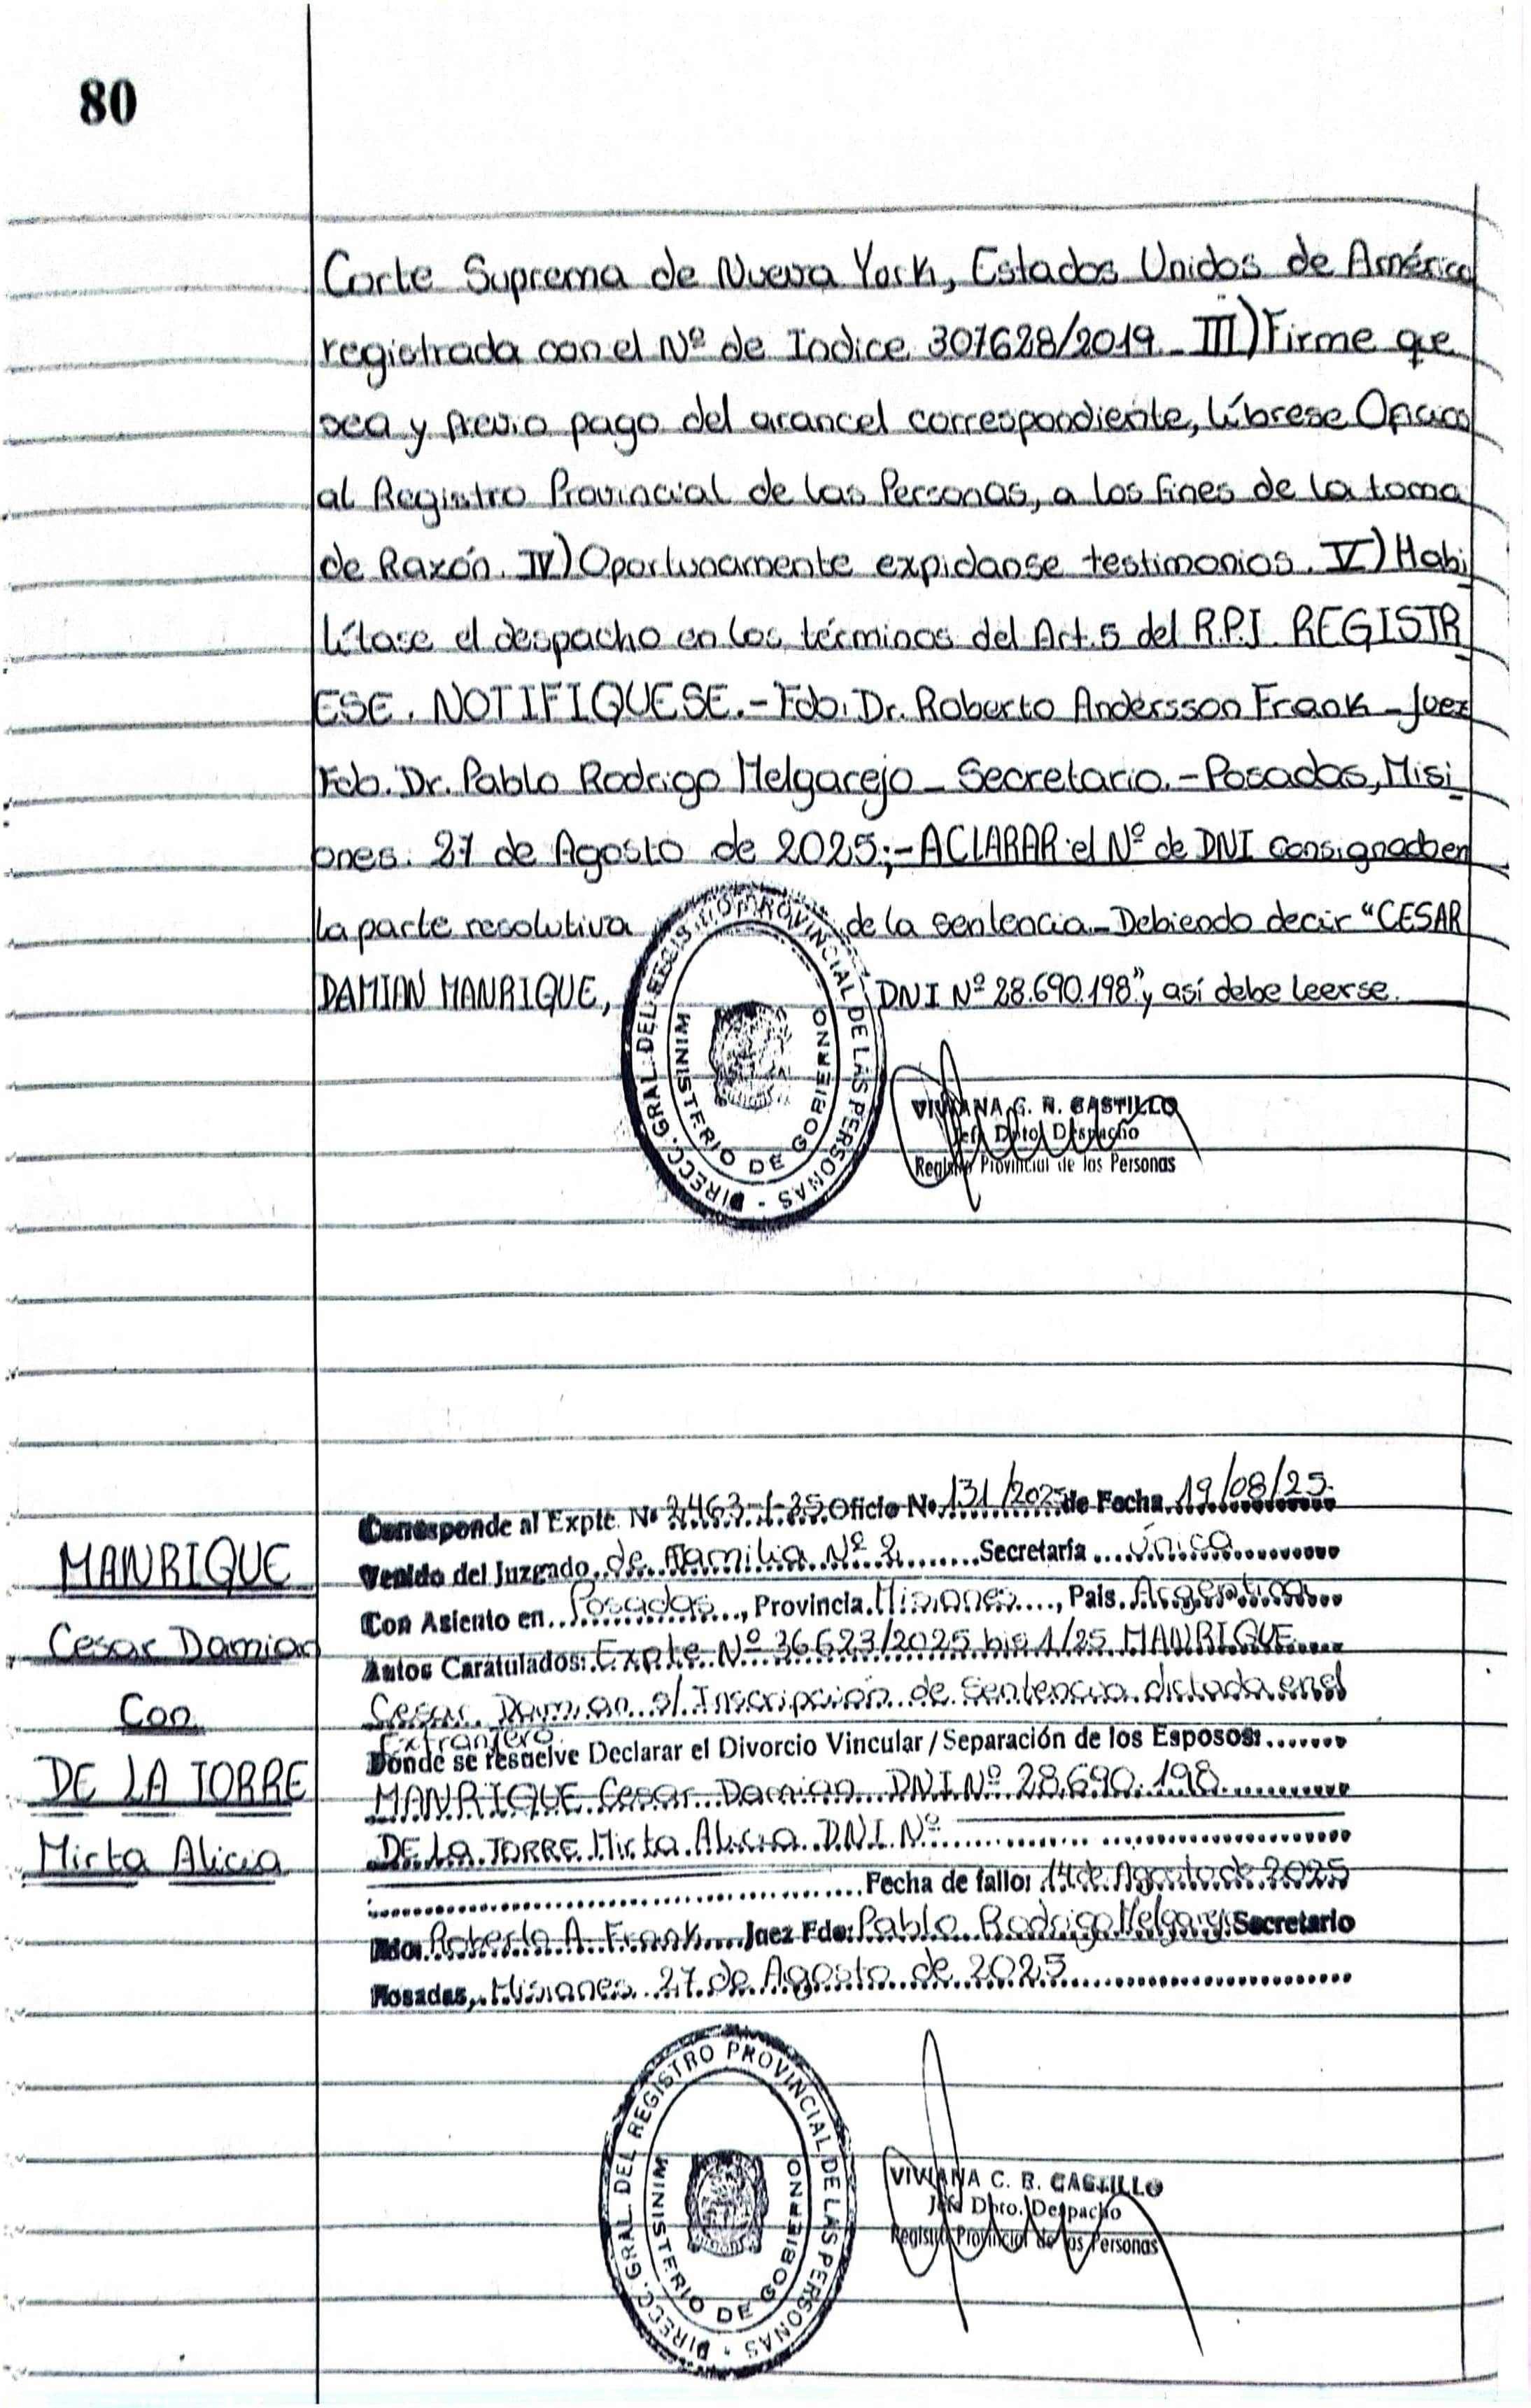 80
Corte Suprema de Nueva York, Estados Unidos de América
registrada con el Nº de Indice 307628/2019_ III) Firme que
sea y previo pago del arancel correspondiente, líbrese Oficios
al Registro Provincial de las Personas, a los fines de la toma
de Razón. IV) Oportunamente expidanse testimonios. V) Habi
lítase el despacho en los términos del Art. 5 del R.P.J. REGISTR
ESE. NOTIFIQUESE.- Fdo. Dr. Roberto Andersson Frank - Juez
Fdo. Dr. Pablo Rodrigo Melgarejo _ Secretario.- Posadas, Misi
ones. 27 de Agosto de 2025;- ACLARAR el Nº de DNI consignado en
la parte resolutiva de la sentencia_ Debiendo decir "CESAR
DAMIAN MANRIQUE, DNI Nº 28.690.198" y así debe leerse.
DIRECC. GRAL. DEL REGISTRO PROVINCIAL DE LAS PERSONAS -
MINISTERIO DE GOBIERNO
VIVIANA C. R. CASTILLO
Jefa Dpto. Despacho
Registro Provincial de las Personas
MANRIQUE
Cesar Damian
Con
DE LA TORRE
Mirta Alicia
Corresponde al Expte. Nº 2463-1-25 Oficio Nº 131/2025 de Fecha 19/08/25.
Venido del Juzgado de Familia Nº 2 Secretaría única
Con Asiento en Posadas, Provincia Misiones, Pais. Argentina
Autos Caratulados: Expte Nº 36623/2025 bis 1/25 MANRIQUE
Cesar Damian s/ Inscripción de Sentencia dictada en el
Extranjero
Donde se resuelve Declarar el Divorcio Vincular / Separación de los Esposos:
MANRIQUE Cesar Damian DNI Nº 28.690.198
DE LA TORRE Mirta Alicia D.N.I. Nº
Fecha de fallo: 14 de Agosto de 2025
Fdo: Roberto A. Frank Juez Fdo: Pablo Rodrigo Melgarejo Secretario
Posadas, Misiones 27 de Agosto de 2025
DIRECC. GRAL. DEL REGISTRO PROVINCIAL DE LAS PERSONAS -
MINISTERIO DE GOBIERNO
VIVIANA C. R. CASTILLO
Jefa Dpto. Despacho
Registro Provincial de las Personas